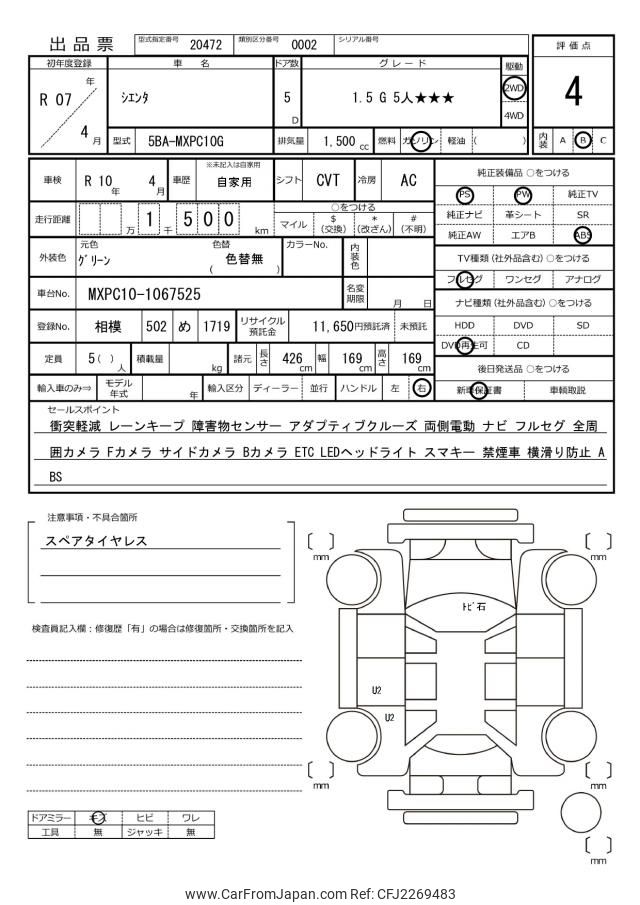 出品票 型式指定番号 20472 類別区分番号 0002 シリアル番号
評価点
4
内装 A B C
初年度登録 車名 ドア数 グレード 駆動
R 07 年 4 月 シエンタ 5 D 1.5 G 5人★★★ 2WD
4WD
型式 5BA-MXPC10G 排気量 1,500 cc 燃料 ガソリン 軽油 ( )
車検 R 10 年 4 月 車歴 ※未記入は自家用 自家用 シフト CVT 冷房 AC
走行距離 1 万 千 5 0 0 km
○をつける
マイル $ (交換) * (改ざん) # (不明)
外装色 元色 グリーン 色替 ( 色替無 ) カラーNo. 内装色
車台No. MXPC10-1067525 名変期限 月 日
登録No. 相模 502 め 1719 リサイクル預託金 11,650円預託済 未預託
定員 5 ( ) 人 積載量 kg 諸元 長さ 426 cm 幅 169 cm 高さ 169 cm
輸入車のみ⇒ モデル年式 年 輸入区分 ディーラー 並行 ハンドル 左 右
純正装備品 ○をつける
PS PW 純正TV
純正ナビ 革シート SR
純正AW エアB ABS
TV種類 (社外品含む) ○をつける
フルセグ ワンセグ アナログ
ナビ種類 (社外品含む) ○をつける
HDD DVD SD
DVD再生可 CD
後日発送品 ○をつける
新車保証書 車輌取説
セールスポイント
衝突軽減 レーンキープ 障害物センサー アダプティブクルーズ 両側電動 ナビ フルセグ 全周
囲カメラ Fカメラ サイドカメラ Bカメラ ETC LEDヘッドライト スマキー 禁煙車 横滑り防止 A
BS
注意事項・不具合箇所
スペアタイヤレス
検査員記入欄：修復歴「有」の場合は修復箇所・交換箇所を記入
[ ] mm
[ ] mm
トビ石
U2
U2
[ ] mm
[ ] mm
[ ] mm
ドアミラー キズ ヒビ ワレ
工具 無 ジャッキ 無
www.CarFromJapan.com Ref: CFJ2269483